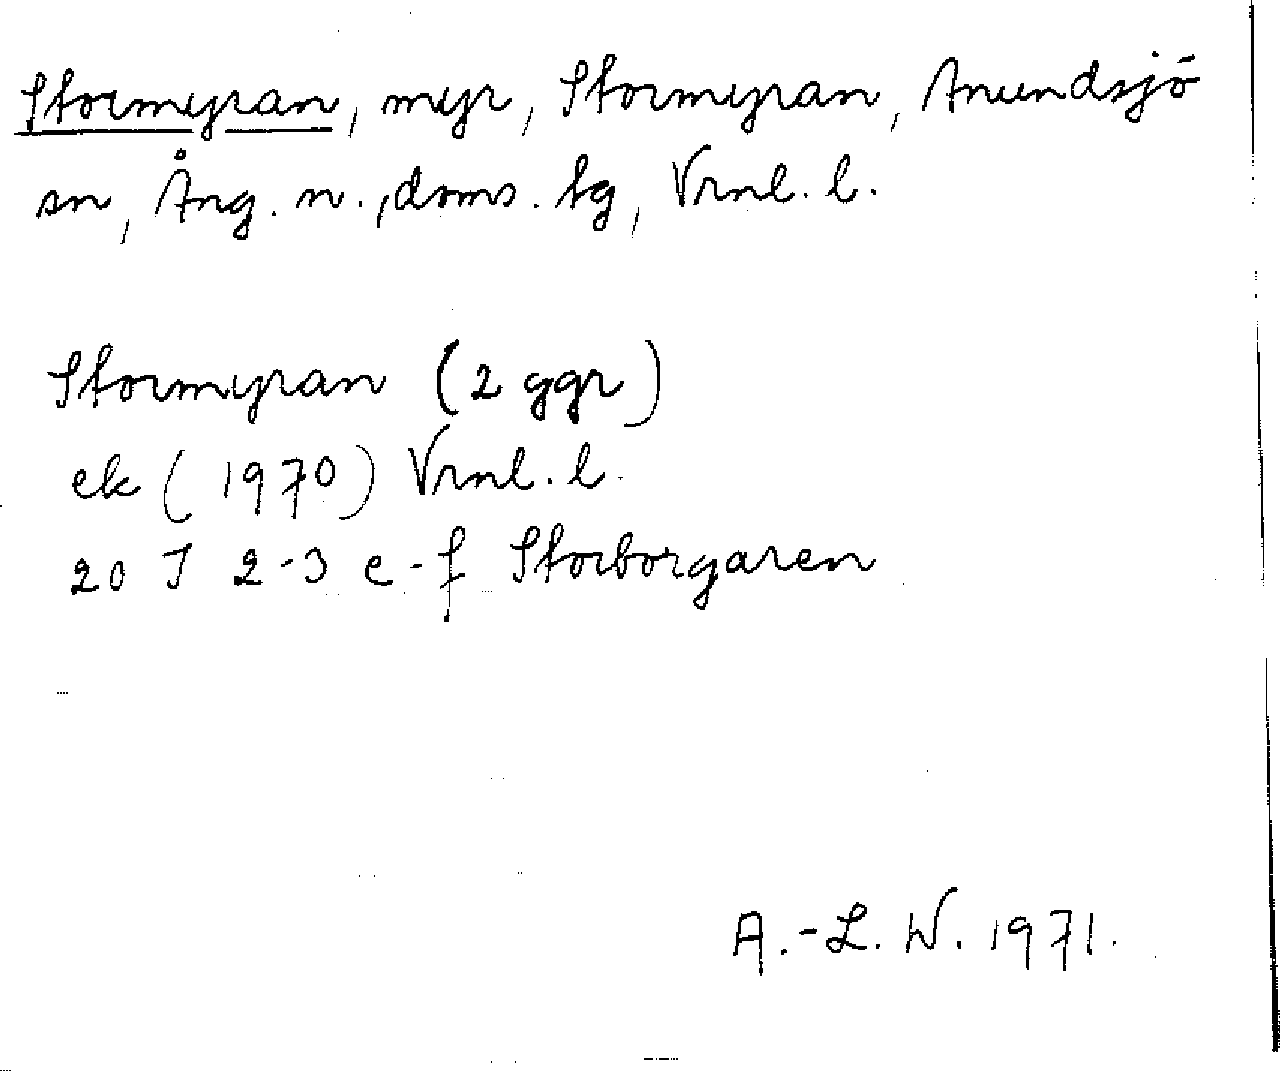 Stormyran, myr, Stormyran, Anundsjö
sn, Ång. n., doms. tg, Vrnl. l.
Stormyran (2 ggr)
ek (1970) Vrnl. l.
20 J 2-3 e-f Storborgaren
A.-L. W. 1971.